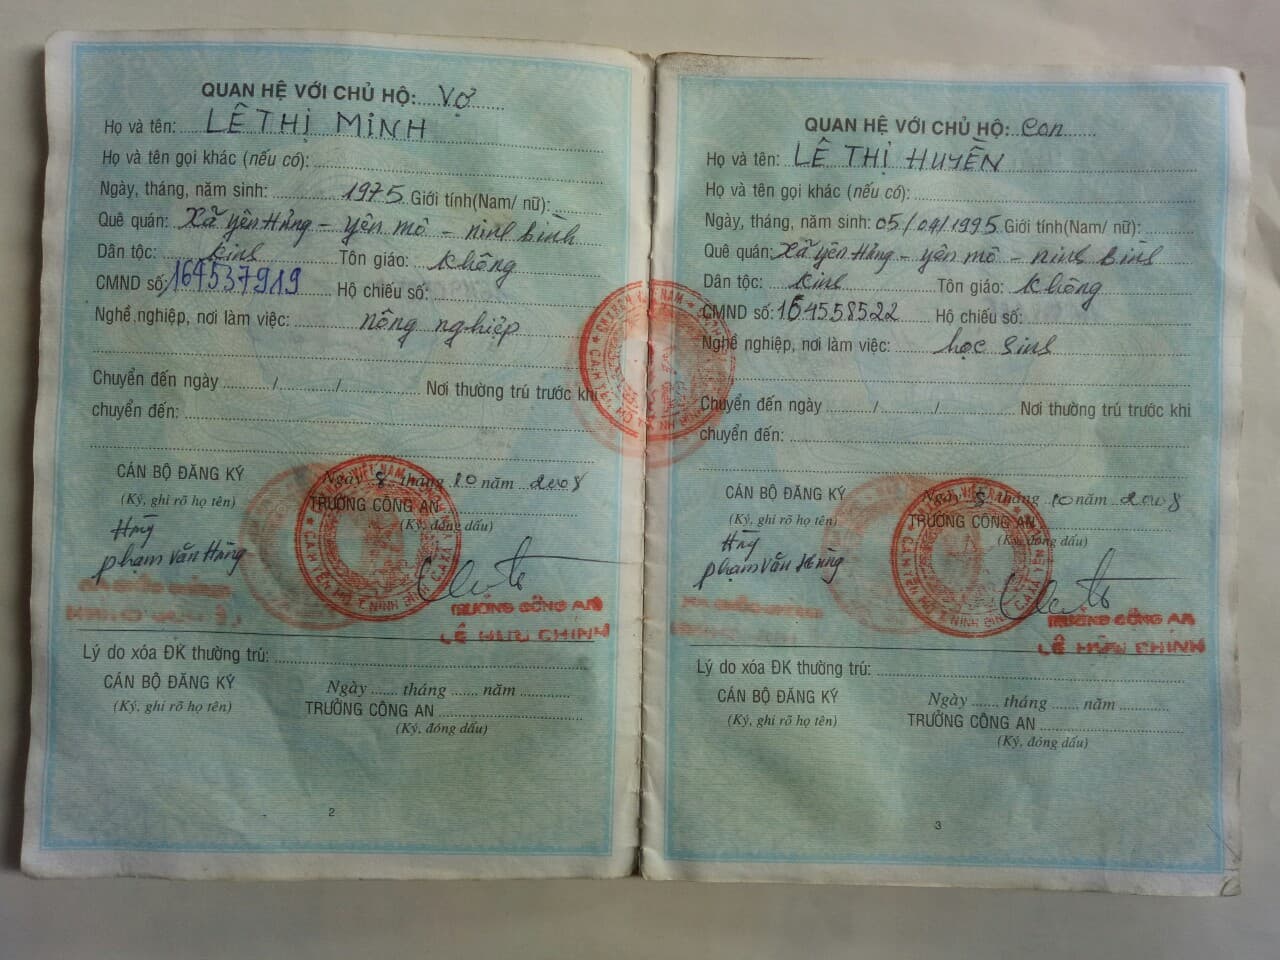 QUAN HỆ VỚI CHỦ HỘ: Vợ
Họ và tên: LÊ THỊ MINH
Họ và tên gọi khác (nếu có):
Ngày, tháng, năm sinh: 1975 Giới tính(Nam/ nữ):
Quê quán: Xã Yên Hưng - yên mô - ninh bình
Dân tộc: kinh Tôn giáo: không
CMND số: 164537919 Hộ chiếu số:
Nghề nghiệp, nơi làm việc: nông nghiệp
Chuyển đến ngày / / Nơi thường trú trước khi
chuyển đến:
CÁN BỘ ĐĂNG KÝ
(Ký, ghi rõ họ tên)
Hùng
phạm văn Hùng
Ngày 8 tháng 10 năm 2008
TRƯỞNG CÔNG AN
(Ký, đóng dấu)
TRƯỞNG CÔNG AN
LÊ HỮU CHÍNH
Lý do xóa ĐK thường trú:
CÁN BỘ ĐĂNG KÝ
(Ký, ghi rõ họ tên)
Ngày tháng năm
TRƯỞNG CÔNG AN
(Ký, đóng dấu)
2
QUAN HỆ VỚI CHỦ HỘ: Con
Họ và tên: LÊ THỊ HUYỀN
Họ và tên gọi khác (nếu có):
Ngày, tháng, năm sinh: 05/09/1995 Giới tính(Nam/ nữ):
Quê quán: Xã yên Hưng - yên mô - ninh bình
Dân tộc: kinh Tôn giáo: không
CMND số: 164558522 Hộ chiếu số:
Nghề nghiệp, nơi làm việc: học sinh
Chuyển đến ngày / / Nơi thường trú trước khi
chuyển đến:
CÁN BỘ ĐĂNG KÝ
(Ký, ghi rõ họ tên)
Hùng
phạm văn Hùng
Ngày 8 tháng 10 năm 2008
TRƯỞNG CÔNG AN
(Ký, đóng dấu)
TRƯỞNG CÔNG AN
LÊ HỮU CHÍNH
Lý do xóa ĐK thường trú:
CÁN BỘ ĐĂNG KÝ
(Ký, ghi rõ họ tên)
Ngày tháng năm
TRƯỞNG CÔNG AN
(Ký, đóng dấu)
3